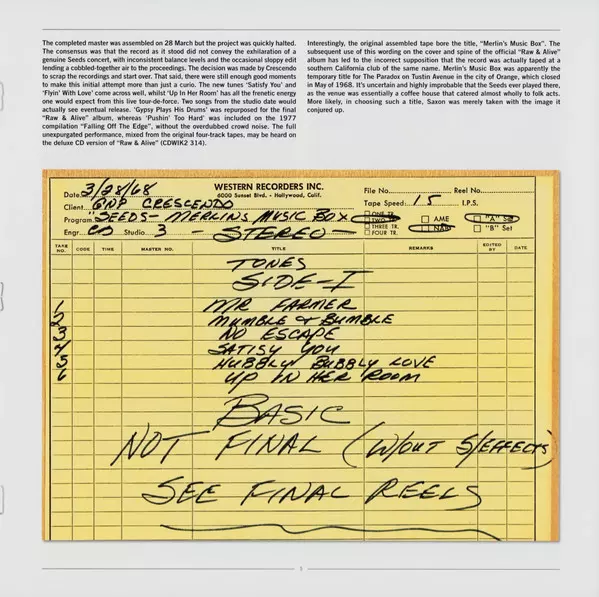 The completed master was assembled on 28 March but the project was quickly halted.
The consensus was that the record as it stood did not convey the exhilaration of a
genuine Seeds concert, with inconsistent balance levels and the occasional sloppy edit
lending a cobbled-together air to the proceedings. The decision was made by Crescendo
to scrap the recordings and start over. That said, there were still enough good moments
to make this initial attempt more than just a curio. The new tunes 'Satisfy You' and
'Flyin' With Love' come across well, whilst 'Up In Her Room' has all the frenetic energy
one would expect from this live tour-de-force. Two songs from the studio date would
actually see eventual release. 'Gypsy Plays His Drums' was repurposed for the final
"Raw & Alive" album, whereas 'Pushin' Too Hard' was included on the 1977
compilation "Falling Off The Edge", without the overdubbed crowd noise. The full
unexpurgated performance, mixed from the original four-track tapes, may be heard on
the deluxe CD version of "Raw & Alive" (CDWIK2 314).
Interestingly, the original assembled tape bore the title, "Merlin's Music Box". The
subsequent use of this wording on the cover and spine of the official "Raw & Alive"
album has led to the incorrect supposition that the record was actually taped at a
southern California club of the same name. Merlin's Music Box was apparently the
temporary title for The Paradox on Tustin Avenue in the city of Orange, which closed
in May of 1968. It's uncertain and highly improbable that the Seeds ever played there,
as the venue was essentially a coffee house that catered almost wholly to folk acts.
More likely, in choosing such a title, Saxon was merely taken with the image it
conjured up.
WESTERN RECORDERS INC.
6000 Sunset Blvd. - Hollywood, Calif.
Date 3/28/68
File No. Reel No.
Client GNP CRESCENDO
Tape Speed 15 I.P.S.
Program "SEEDS - MERLINS MUSIC BOX
ONE TR.
TWO TR.
THREE TR.
FOUR TR.
AME
NAB
"A" Set
"B" Set
Engr. Studio 3 - STEREO -
TAKE NO. CODE TIME MASTER NO. TITLE REMARKS EDITED BY DATE
TONES
SIDE-I
1 MR FARMER
2 MUMBLE & BUMBLE
3 NO ESCAPE
4 SATISY YOU
5 HUBBLY BUBBLY LOVE
6 UP IN HER ROOM
BASIC
NOT FINAL (W/OUT S/EFFECTS)
SEE FINAL REELS
5